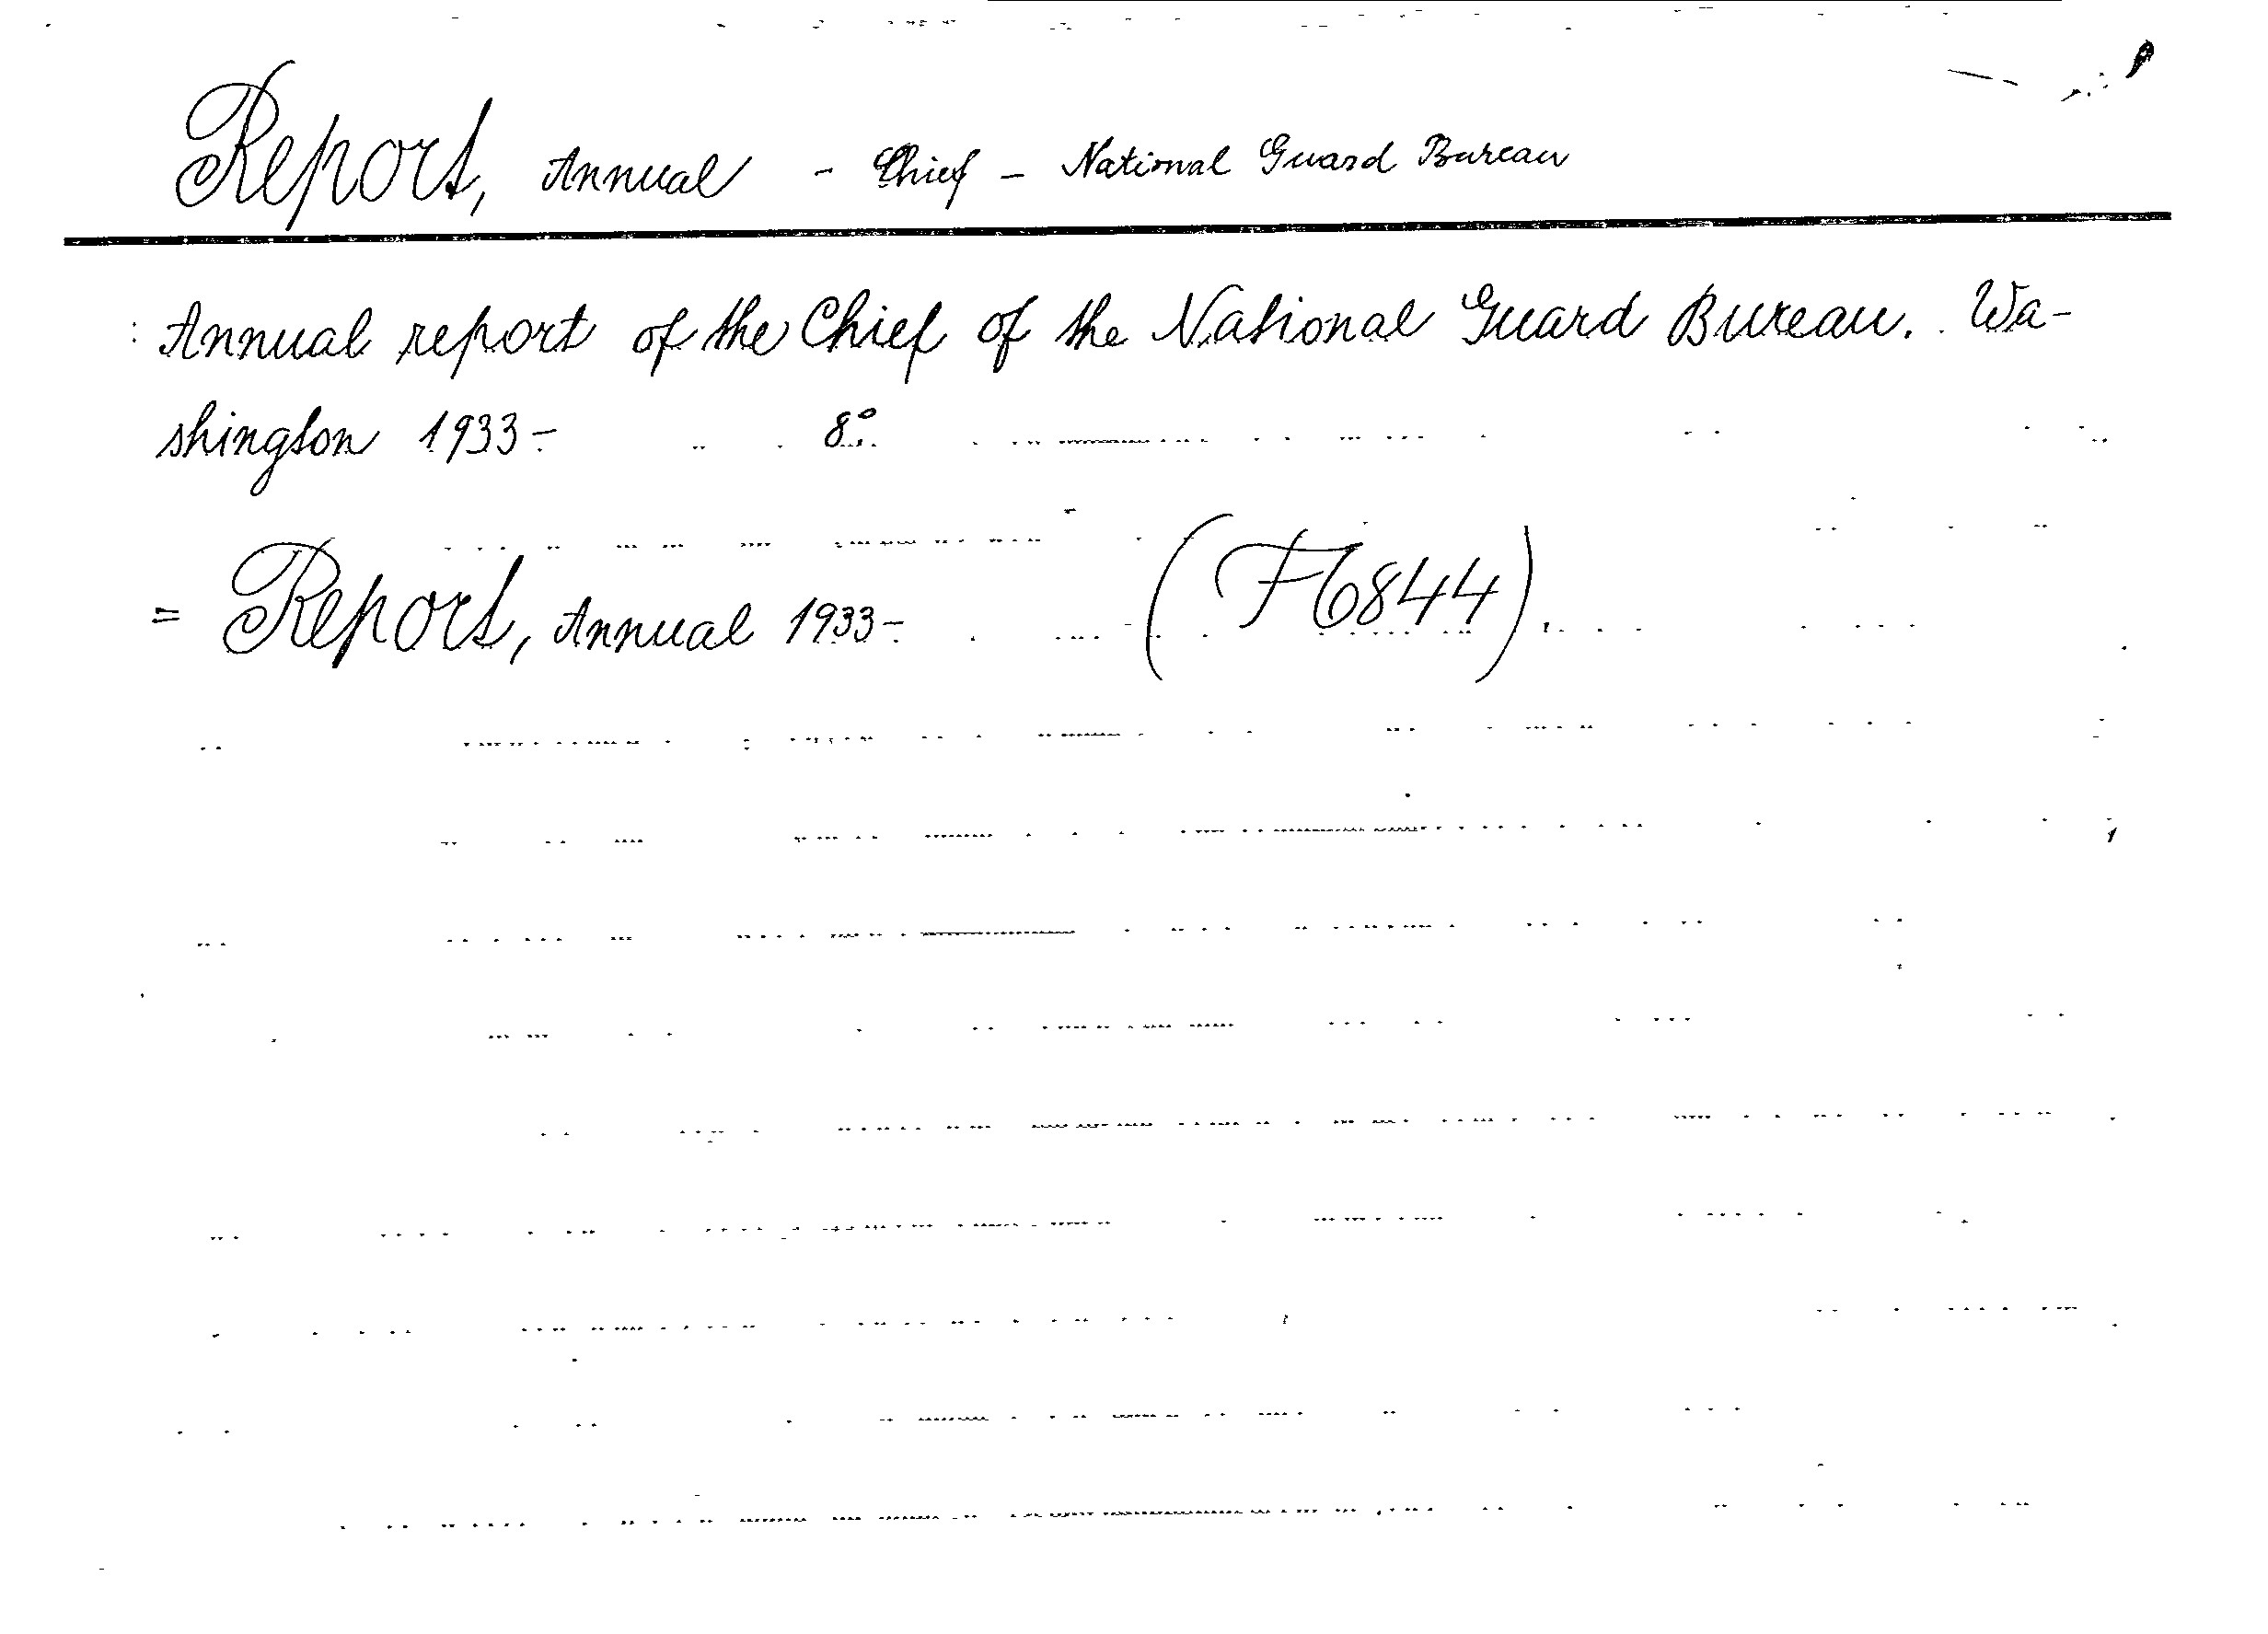 Report, Annual - Chief - National Guard Bureau
: Annual report of the Chief of the National Guard Bureau. Wa-
shington 1933- 8°.
= Report, Annual 1933- (F6844).